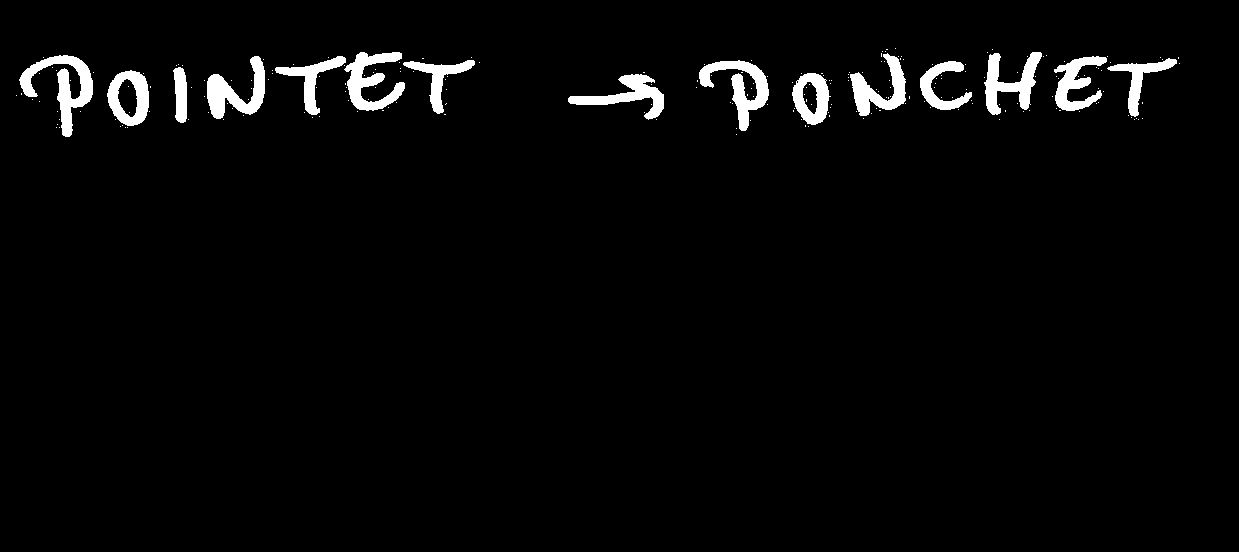 POINTET → PONCHET